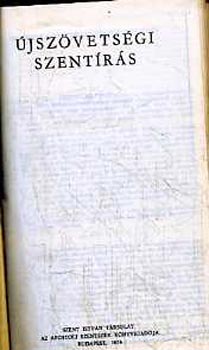 ÚJSZÖVETSÉGI
SZENTÍRÁS
SZENT ISTVÁN TÁRSULAT,
AZ APOSTOLI SZENTSZÉK KÖNYVKIADÓJA
BUDAPEST,